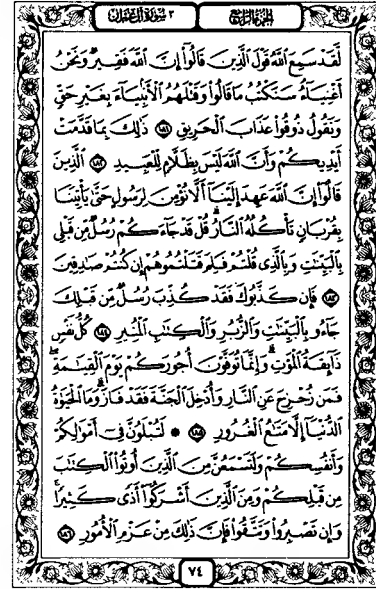 ٣ سورة آل عمران الجزء الرابع
لَّقَدْ سَمِعَ اللَّهُ قَوْلَ الَّذِينَ قَالُوا إِنَّ اللَّهَ فَقِيرٌ وَنَحْنُ
أَغْنِيَاءُ سَنَكْتُبُ مَا قَالُوا وَقَتْلَهُمُ الْأَنْبِيَاءَ بِغَيْرِ حَقٍّ
وَنَقُولُ ذُوقُوا عَذَابَ الْحَرِيقِ ١٨١ ذَٰلِكَ بِمَا قَدَّمَتْ
أَيْدِيكُمْ وَأَنَّ اللَّهَ لَيْسَ بِظَلَّامٍ لِّلْعَبِيدِ ١٨٢ الَّذِينَ
قَالُوا إِنَّ اللَّهَ عَهِدَ إِلَيْنَا أَلَّا نُؤْمِنَ لِرَسُولٍ حَتَّىٰ يَأْتِيَنَا
بِقُرْبَانٍ تَأْكُلُهُ النَّارُ قُلْ قَدْ جَاءَكُمْ رُسُلٌ مِّن قَبْلِي
بِالْبَيِّنَٰتِ وَبِالَّذِي قُلْتُمْ فَلِمَ قَتَلْتُمُوهُمْ إِن كُنتُمْ صَٰدِقِينَ
١٨٣ فَإِن كَذَّبُوكَ فَقَدْ كُذِّبَ رُسُلٌ مِّن قَبْلِكَ
جَاءُو بِالْبَيِّنَٰتِ وَالزُّبُرِ وَالْكِتَٰبِ الْمُنِيرِ ١٨٤ كُلُّ نَفْسٍ
ذَائِقَةُ الْمَوْتِ وَإِنَّمَا تُوَفَّوْنَ أُجُورَكُمْ يَوْمَ الْقِيَٰمَةِ
فَمَن زُحْزِحَ عَنِ النَّارِ وَأُدْخِلَ الْجَنَّةَ فَقَدْ فَازَ وَمَا الْحَيَوٰةُ
الدُّنْيَا إِلَّا مَتَٰعُ الْغُرُورِ ١٨٥ لَتُبْلَوُنَّ فِي أَمْوَٰلِكُمْ
وَأَنفُسِكُمْ وَلَتَسْمَعُنَّ مِنَ الَّذِينَ أُوتُوا الْكِتَٰبَ
مِن قَبْلِكُمْ وَمِنَ الَّذِينَ أَشْرَكُوا أَذًى كَثِيرًا
وَإِن تَصْبِرُوا وَتَتَّقُوا فَإِنَّ ذَٰلِكَ مِنْ عَزْمِ الْأُمُورِ ١٨٦
٧٤